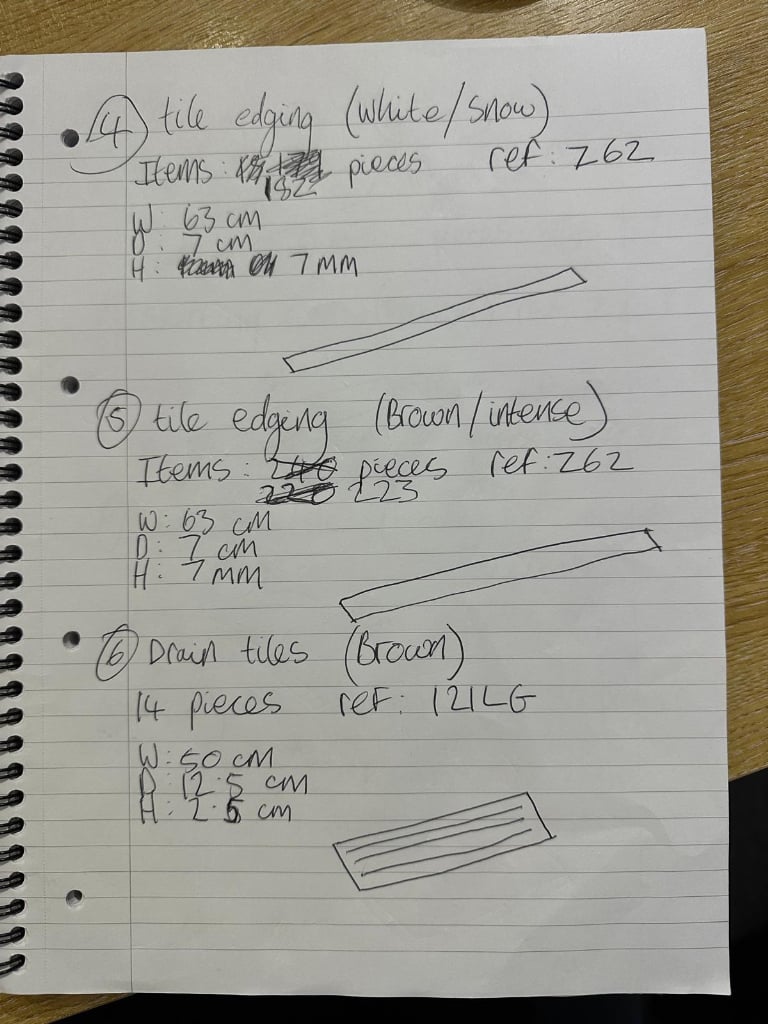 4 tile edging (White/Snow)
Items: pieces ref: Z62
182
W: 63 cm
D: 7 cm
H: 7 MM
5 tile edging (Brown/intense)
Items: 240 pieces ref: Z62
220 223
W: 63 cm
D: 7 cm
H: 7 MM
6 Drain tiles (Brown)
14 pieces ref: 121LG
W: 50 cm
D: 12.5 cm
H: 2.5 cm